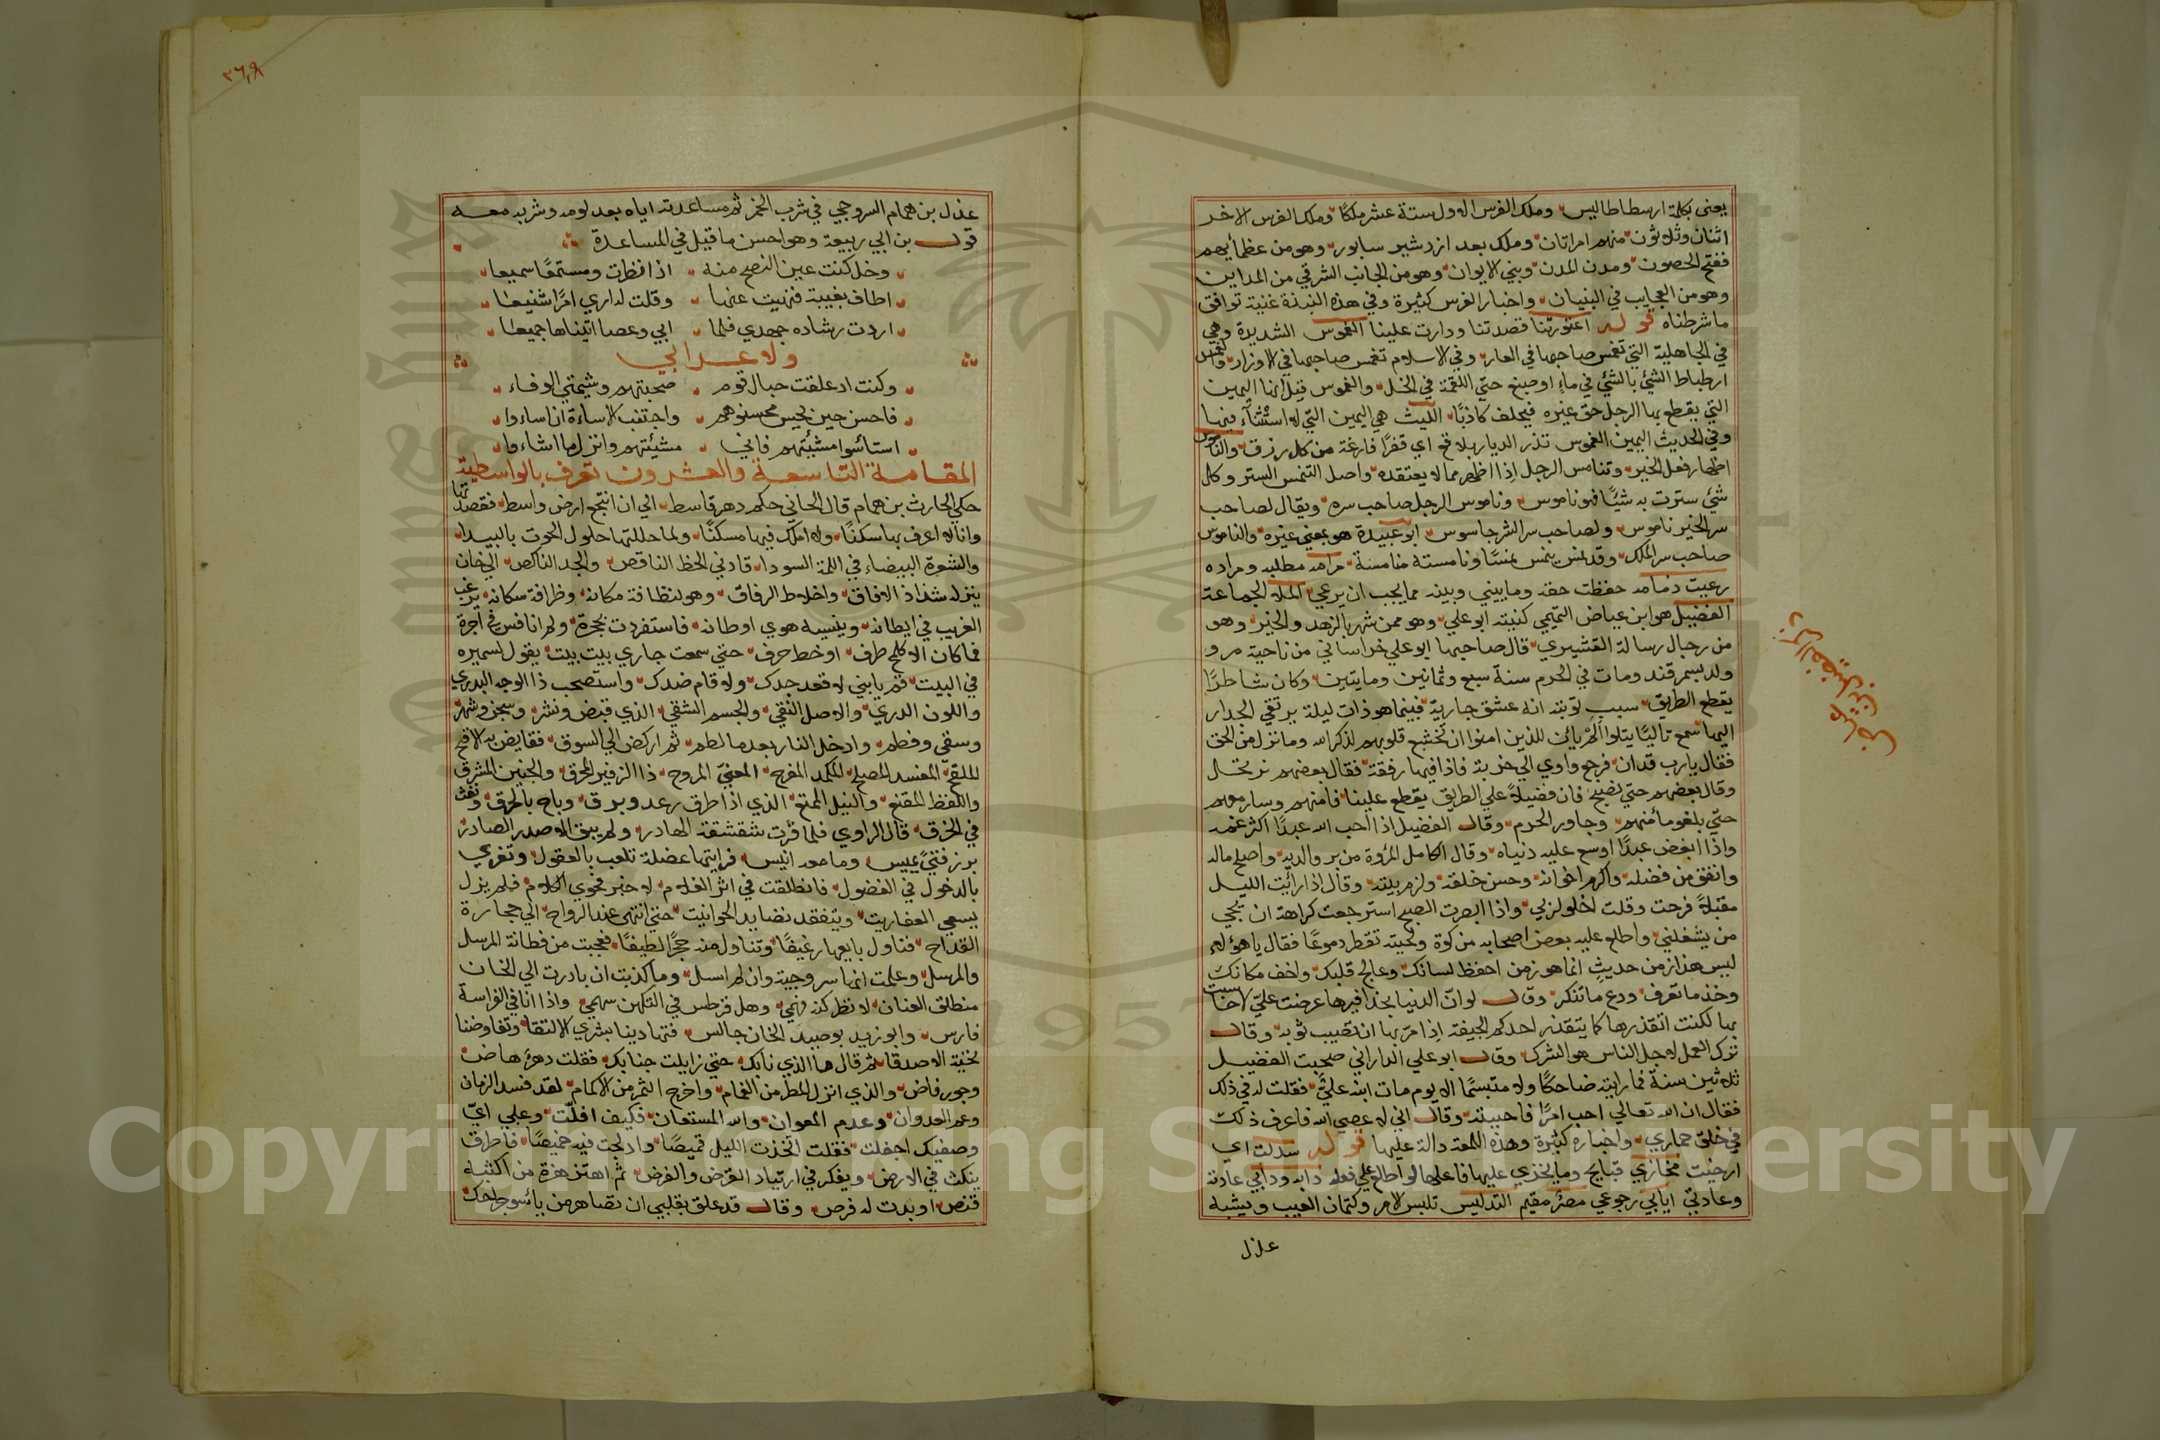 يعنى بكلة ارسطاطاليس وملك الفرس الاول ستة عشر ملكا وملك الفرس الاخر
اثنان وثلاثون منهم امراتان وملك بعد ازدشير سابور وهو من عظمائهم
ففتح الحصون ومدن المدن وبني الايوان وهو من الجانب الشرقي من المداين
وهو من العجايب في البنيان واخبار الفرس كثيرة وفي هذه النبذة غنية توافق
ما شرطناه قوله اعتورتنا قصدتنا ودارت علينا الغموس الشديرة وهي
في الجاهلية التي تغمس صاحبها في العار وفي الاسلام تغمس صاحبها في الاوزار والغمس
ارطباط الشئ بالشئ في ماء او صبغ حتي اللقمة في الخل والغموس قيل انها اليمين
التي يقطع بها الرجل حق غيره فيحلف كاذبا الليث هي اليمين التي لا استثناء فيها
وفي الحديث اليمين الغموس تذر الديار بلاقع اي قفرا فارغة من كل رزق والناموس
اظهار فعل الخير وتنامس الرجل اذا اظهر مما لا يعتقده واصل التنمس الستر وكل
شئ سترت به شيئا فهو ناموس وناموس الرجل صاحب سره ويقال لصاحب
سر الخير ناموس ولصاحب سر الشر جاسوس ابو عبيدة هو بمعني غيره والناموس
صاحب سر الملك وقد نمس ينمس نمسا ونامسته منامسة مرامه مطلبه ومراده
رعيت ذمامه حفظت حقه وما بيني وبينه مما يجب ان يرعي الملا الجماعة
الفضيل هو ابن عياض التميمي كنيته ابو علي وهو ممن شهر بالزهد والخير وهو
من رجال رسالة القشيري قال صاحبها ابو علي خراساني من ناحية مرو
ولد بسمرقند ومات في الحرم سنة سبع وثمانين ومايتين وكان شاطرا
يقطع الطريق سبب توبته انه عشق جارية فبينما هو ذات ليلة يرتقي الجدار
اليها سمع تاليا يتلوا الم يائن للذين امنوا ان تخشع قلوبهم لذكر الله وما نزل من الحق
فقال يا رب قد ان فرجع واوي الي خربة فاذا فيها رفقة فقال بعضهم نرتحل
وقال بعضهم حتي نصبح فان فضيلا علي الطريق يقطع علينا فامنهم وسار معهم
حتي بلغوا مأمنهم وجاور الحرم وقال الفضيل اذا احب الله عبدا اكثر غمه
واذا ابغض عبدا اوسع عليه دنياه وقال الكامل المروة من بر والديه واصلح ماله
وانفق من فضله واكرم اخوانه وحسن خلقه ولزم بيته وقال اذا رائت الليل
مقبلا فرحت وقلت اخلو لربي واذا ابصرت الصبح استرجعت كراهة ان يجي
من يشغلني واطلع عليه بعض اصحابه من كوة ولحيته تقطر دموعا فقال يا هؤلاء
ليس هذا زمن حديث انما هو زمن احفظ لسانك وعالج قلبك واخف مكانك
وخذ ما تعرف ودع ما تنكر وقال لو ان الدنيا بحذافيرها عرضت علي لا احاسب
بها لكنت اتقذرها كما يتقذر احدكم الجيفة اذا مر بها ان تصيب ثوبه وقال
ترك العمل لاجل الناس هو الشرك وقال ابو علي الداراني صحبت الفضيل
ثلاثين سنة فما رايته ضاحكا ولا متبسما الا يوم مات ابنه علي فقلت له في ذلك
فقال ان الله تعالي احب امرا فاحببته وقال اني لاعصي الله فاعرف ذلك
في خلق حماري واخباره كثيرة وهذه اللمعة دالة عليها قوله سدلت اي
ارخيت مخازي قبايح وما يخزي عليها فاعلها لو اطلع علي فعله دابه ودابي عادته
وعادتي ايابي رجوعي مصر مقيم التدليس تلبس الامر وكتمان العيب ويشبه
عذل
فضيل بن عياض
٣٦٩
عذل بن همام السروجي في شرب الخمر ثم مساعدته اياه بعد لومه وشربه معه
قول بن ابي ربيعة وهو احسن ما قيل في المساعدة
وخل كنت عين النصح منه اذا نظرت ومستمعا سميعا
اطاف بغيبة فنهيت عنها وقلت له اري امرا شنيعا
اردت رشاده جهدي فلما ابي وعصا اتيناها جميعا
ولاعرابي
وكنت اذ علقت حبال قوم صحبتهم وشيمتي الوفاء
فاحسن حين يحسن محسنوهم واجتنب الاساءة ان اساءوا
استائسوا مشيتهم فاني مشيئتهم وانزل ما اشاءوا
المقامة التاسعة والعشرون تعرف بالواسطية
حكي الحارث بن همام قال الجاني حكم دهر قاسط الي ان انتجع ارض واسط فقصدتها
وانا لا اعرف بها سكنا ولا املك فيها مسكنا ولما حللتها حلول الحوت بالبيداء
والشعرة البيضاء في اللمة السوداء قادني الحظ الناقص والجد الناكص الي خان
ينزله شذاذ الافاق واخلاط الرفاق وهو لنظافة مكانه وظرافة سكانه يرغب
الغريب في ايطانه وينسيه هوي اوطانه فاستفردت بحجرة ولم انافس في اجرة
فما كان الا كلمح طرف او خط حرف حتي سمعت جاري بيت بيت يقول لسميره
في البيت قم يا بني لا قعد جدك ولا قام ضدك واستصحب ذا الوجه البدري
واللون الدري والاصل النقي والجسم الشقي الذي قبض ونشر وسجن وشهر
وسقي وفطم وادخل النار بعد ما لطم ثم اركض الي السوق فقايض به الاقح
الملقح المفسد المصلح المكمد المفرح المعني المروح ذا الزفير المحرق والجنين المشرق
واللفظ المقنع والنيل الممتع الذي اذا طرق رعد وبرق وباح بالحرق ونفث
في الخرق قال الراوي فلما قرت شقشقة الهادر ولم يبق الا صدر الصادر
برز فتي يميس وما معه انيس فرايتها عضلة تلعب بالعقول وتغري
بالدخول في الفضول فانطلقت في اثر الغلام لاخبر فحوي الكلام فلم يزل
يسعي العفاريت ويتفقد نضايد الحوانيت حتي انتهي عند الرواح الي حجارة
القداح فناول بايعها رغيفا وتناول منه حجرا لطيفا فعجبت من فطانة المرسل
والمرسل وعلمت انها سروجية وان لم اسل وما كذبت ان بادرت الي الخان
منطلق العنان لانظر كنه فهمي وهل قرطس في التكهن سهمي واذا انا في الفراسة
فارس وابو زيد بوصيد الخان جالس فتهادينا بشري الالتقا وتقاوضنا
تحية الاصدقا ثم قال ما الذي نابك حتي زايلت جنابك فقلت دهر هاض
وجور فاض والذي انزل المطر من الغمام واخرج الثمر من الاكمام لقد فسد الزمان
وعم العدوان وعدم المعوان والله المستعان فكيف افلت وعلي اي
وصفيك اجفلت فقلت اتخذت الليل قميصا وادلجت فيه خميصا فاطرق
ينكث في الارض ويفكر في ارتياد القرض والفرض ثم اهتز هزة من اكثبه
قنص او بدت له فرص وقال قد علق بقلبي ان تصاهر من ياسو جراحك
Copyright © King Saud University
1957